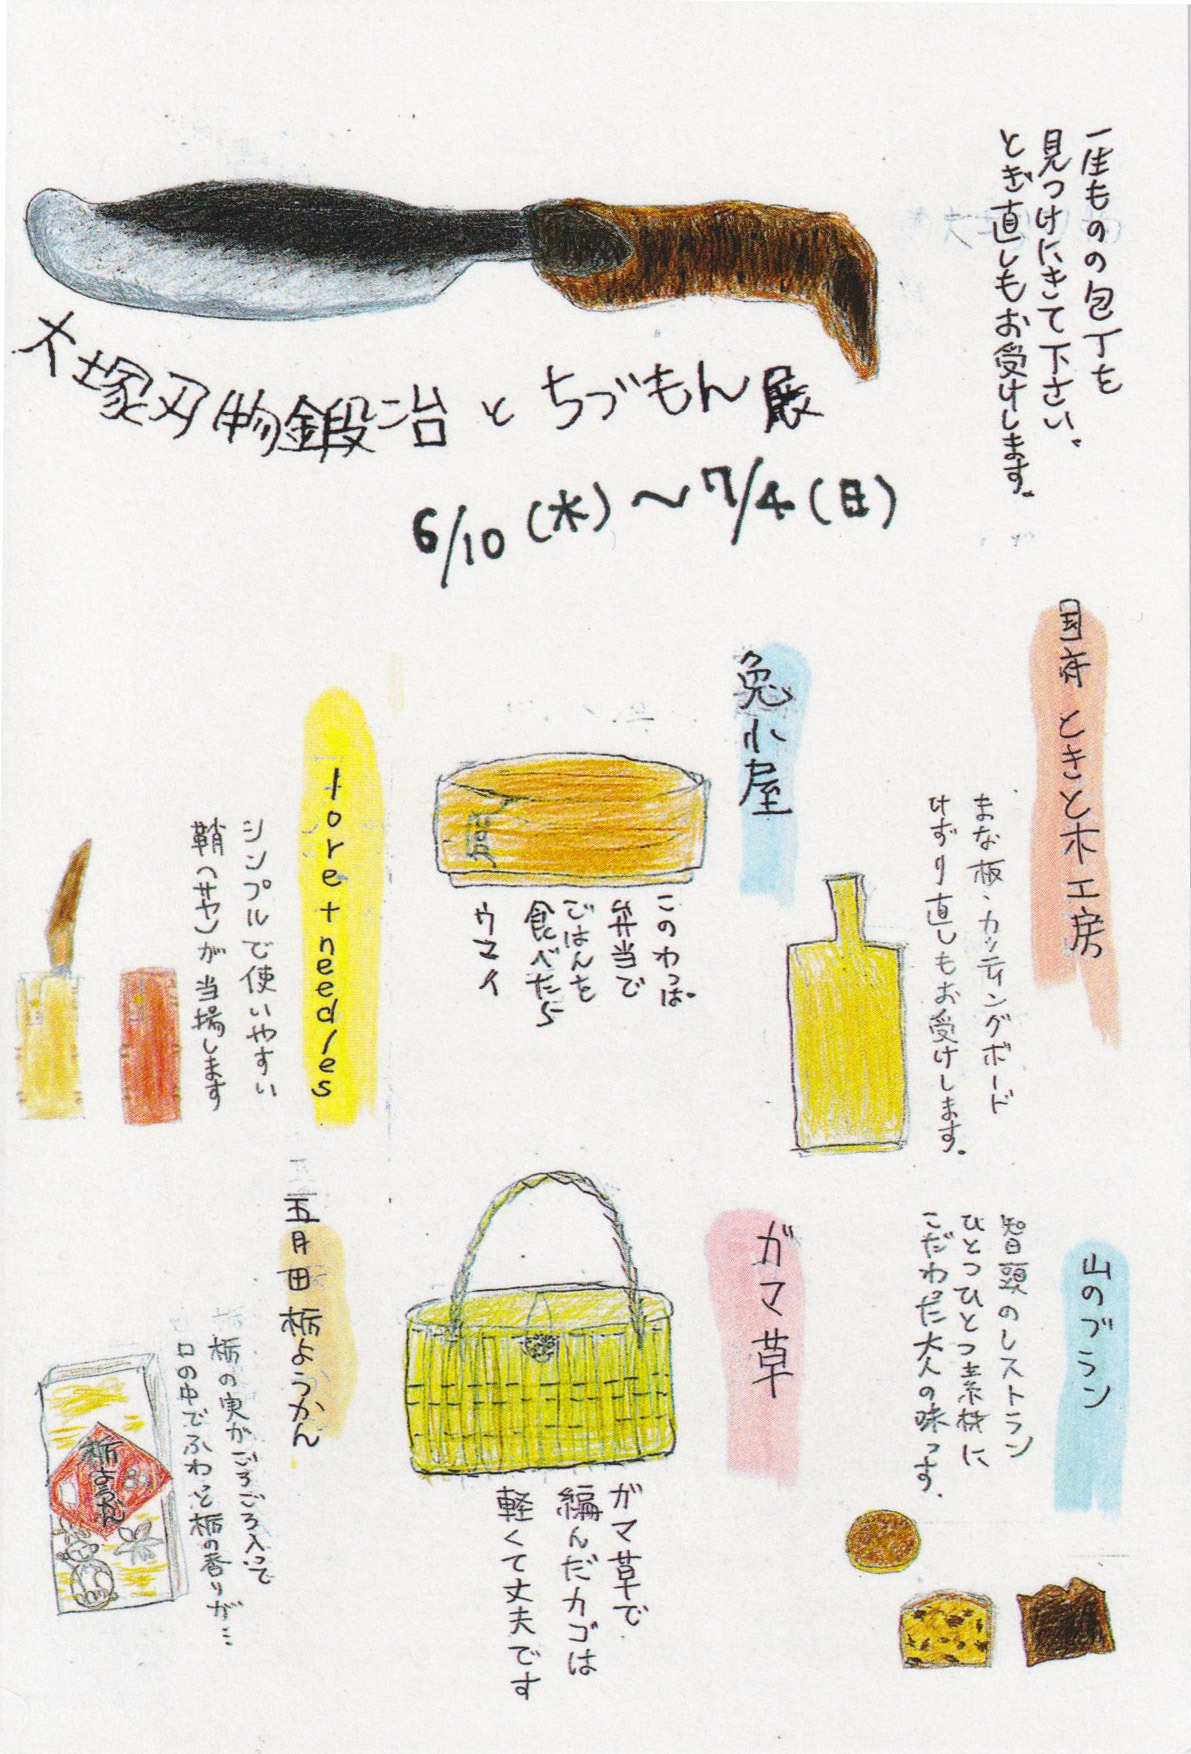 一生ものの包丁を
見つけにきて下さい。
とぎ直しもお受けします。
大塚刃物鍛冶とちづもん展
6/10(水)〜7/4(日)
ときと木工房
まな板・カッティングボード
けずり直しもお受けします。
兎小屋
このわっぱ
弁当で
ごはんを
食べたら
ウマイ
loretneedles
シンプルで使いやすい
鞘(サヤ)が登場します
山のブラン
智頭のレストラン
ひとつひとつ素材に
こだわった大人の味っす。
ガマ草
ガマ草で
編んだカゴは
軽くて丈夫です
五月田栃ようかん
栃の実がごろごろ入って
口の中でふわっと栃の香りが…
栃ようかん